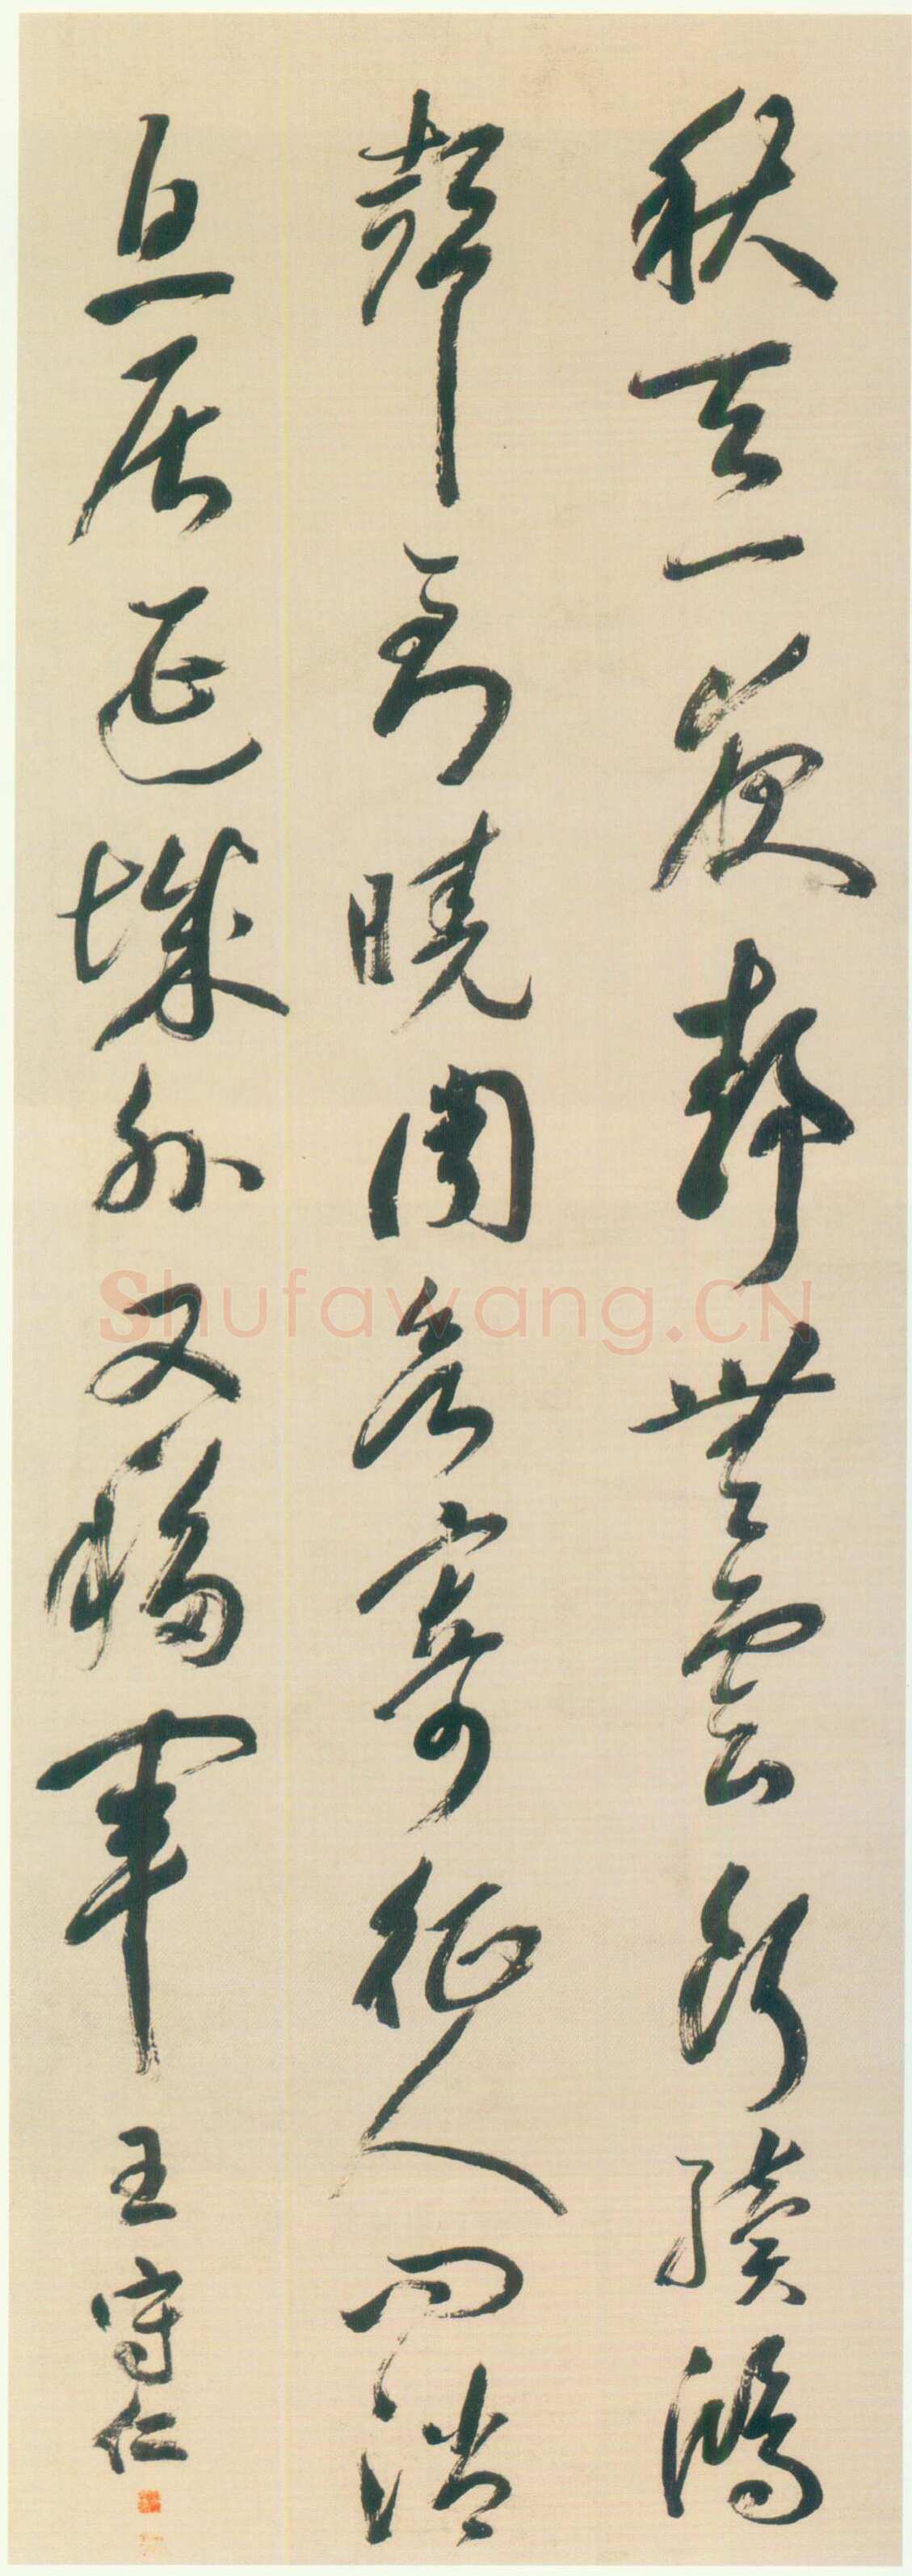 秋天一夜靜無雲斷續鴻
聲到曉聞欲寄征人問消
息居延城外又移軍 王守仁
Shufawang.CN